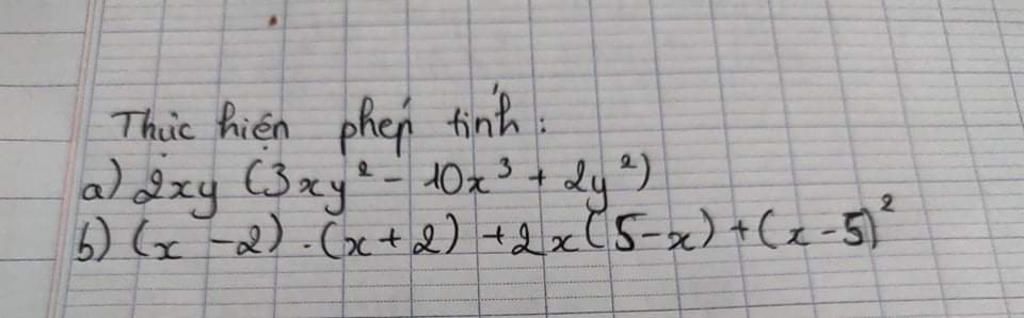 Thực hiện phép tính :
a) 2xy (3xy² - 10x³ + 2y²)
b) (x - 2) . (x + 2) + 2x(5 - x) + (x - 5)²